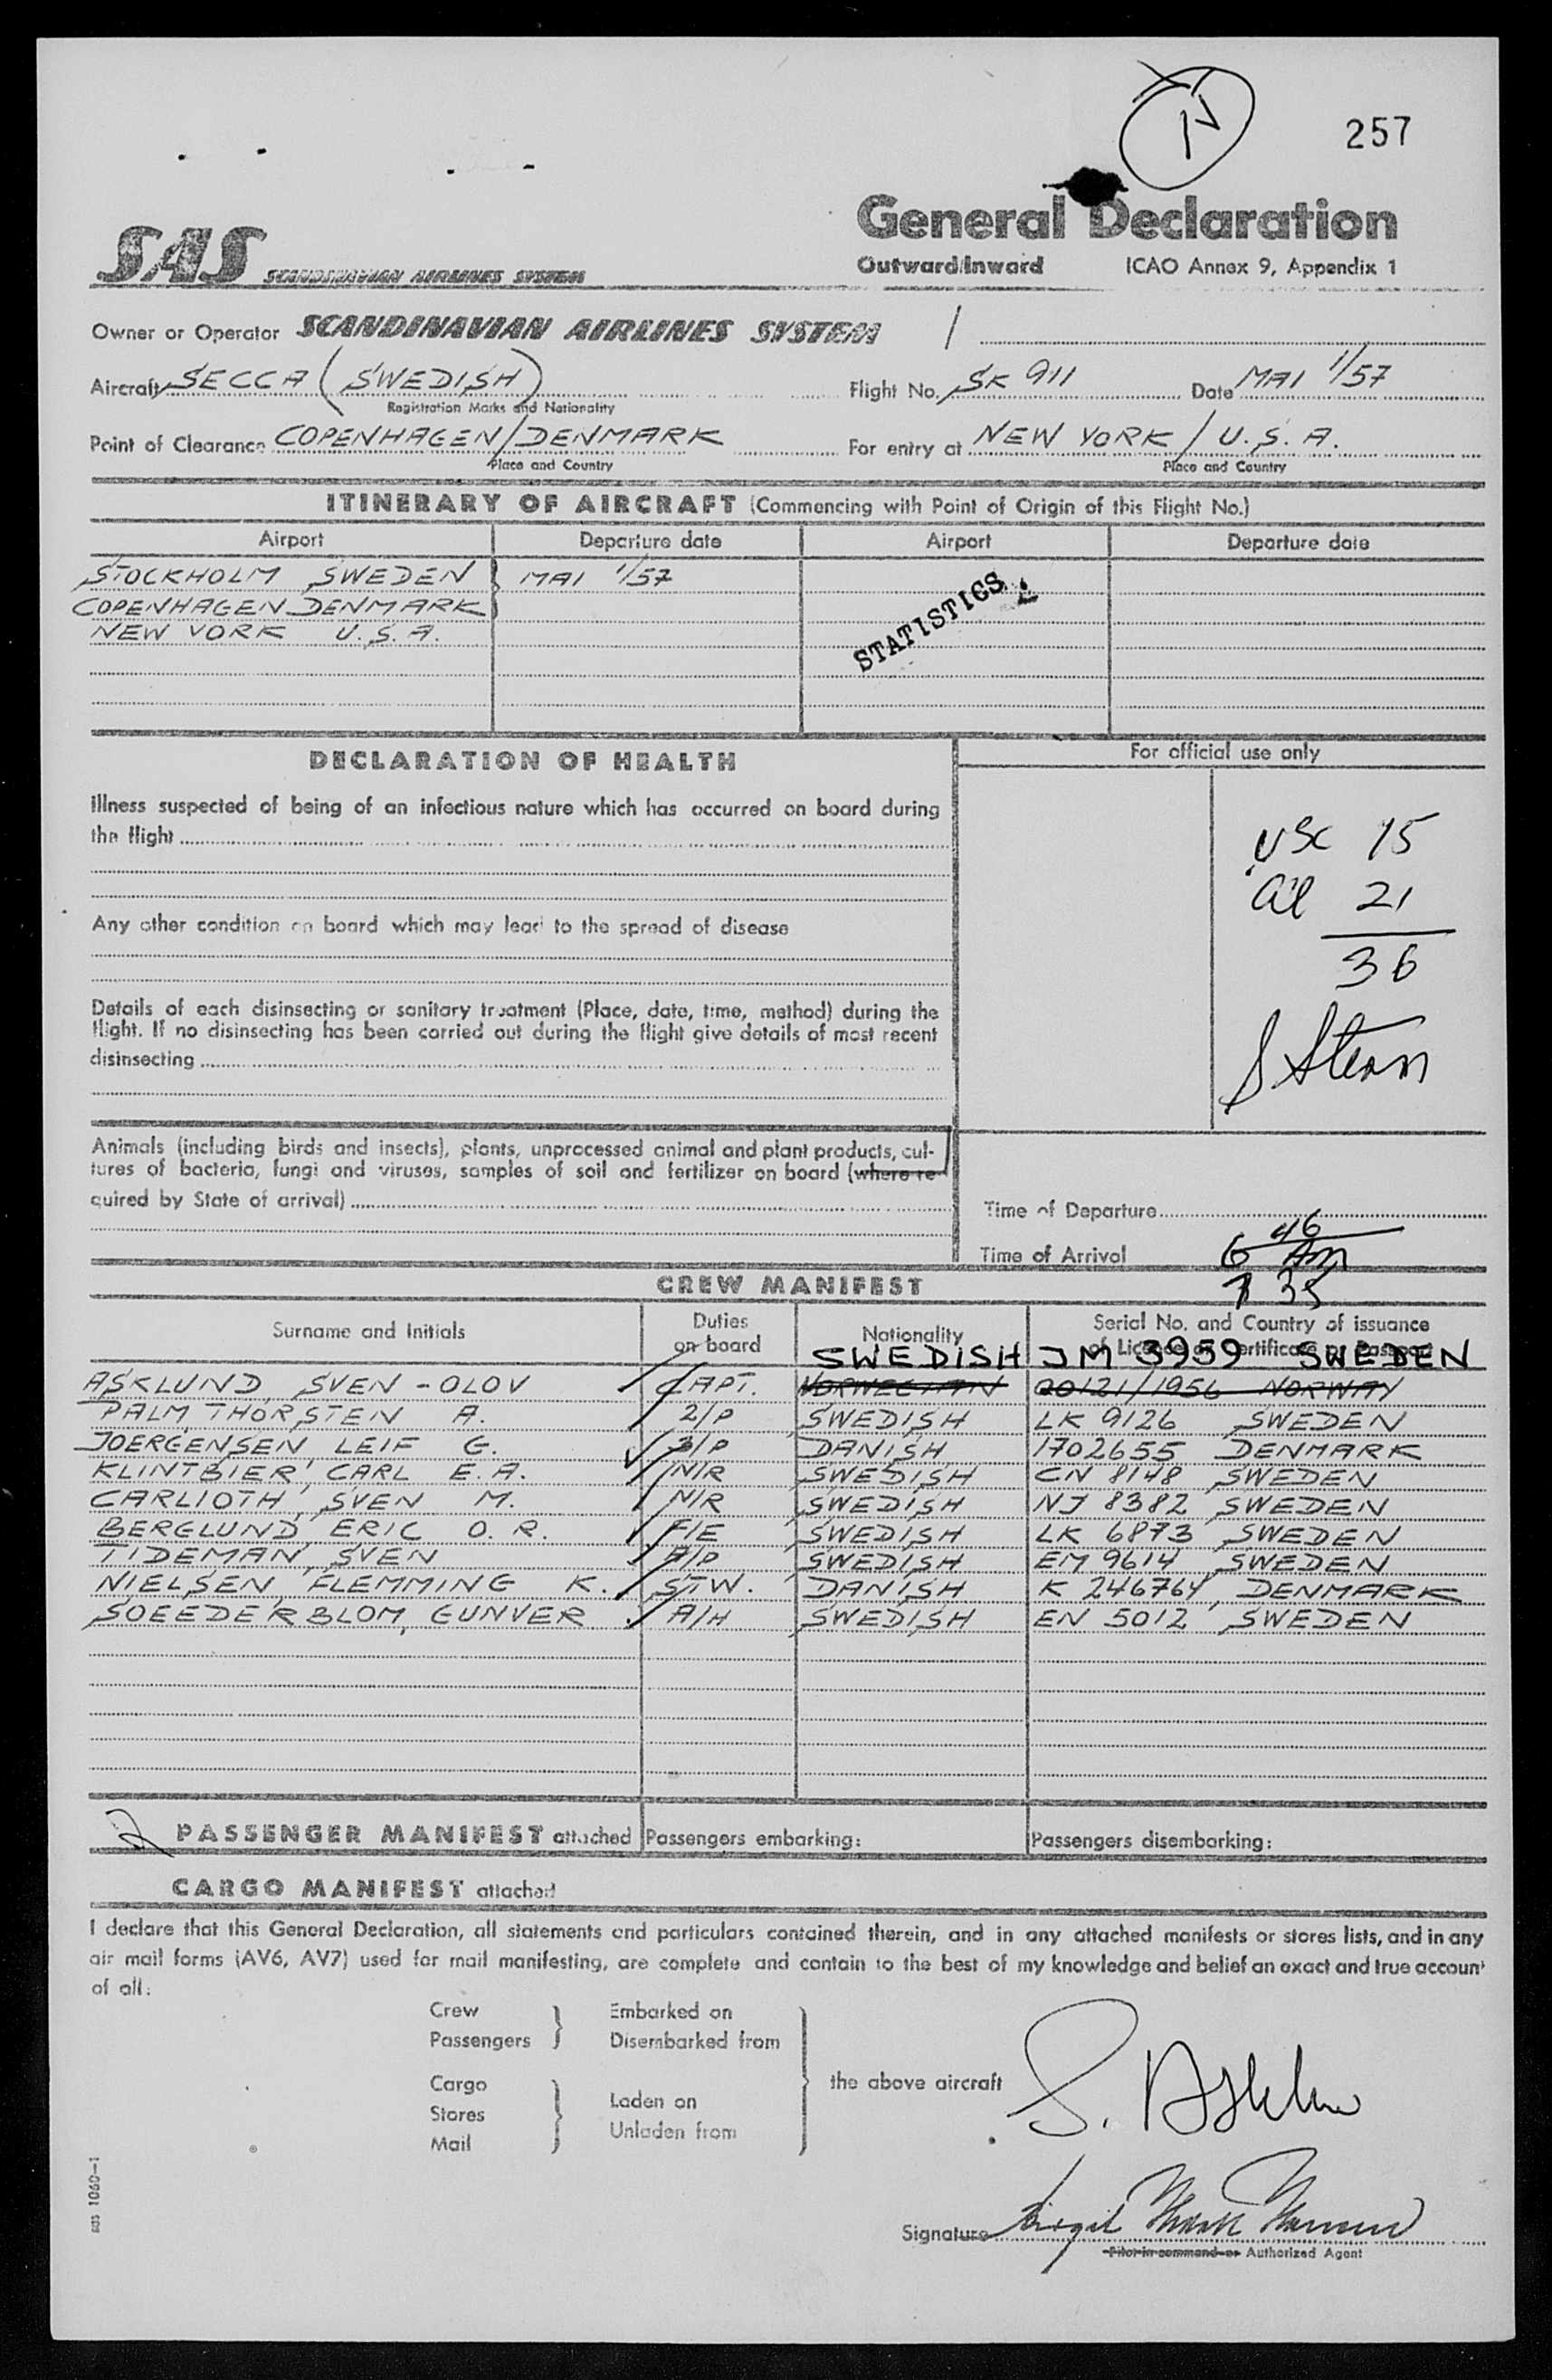 257
SAS SCANDINAVIAN AIRLINES SYSTEM
General Declaration
Outward/Inward ICAO Annex 9, Appendix 1
Owner or Operator SCANDINAVIAN AIRLINES SYSTEM
Aircraft SECCA (SWEDISH) Flight No. SK 911 Date MAI 1/57
Registration Marks and Nationality
Point of Clearance COPENHAGEN/DENMARK For entry at NEW YORK / U.S.A.
Place and Country Place and Country
ITINERARY OF AIRCRAFT (Commencing with Point of Origin of this Flight No.)
Airport Departure date Airport Departure date
STOCKHOLM SWEDEN MAI 1/57
COPENHAGEN DENMARK
NEW YORK U.S.A.
STATISTICS
DECLARATION OF HEALTH
For official use only
Illness suspected of being of an infectious nature which has occurred on board during
the flight
Any other condition on board which may lead to the spread of disease
Details of each disinsecting or sanitary treatment (Place, date, time, method) during the
flight. If no disinsecting has been carried out during the flight give details of most recent
disinsecting
USC 15
al 21
36
S Stern
Animals (including birds and insects), plants, unprocessed animal and plant products, cul-
tures of bacteria, fungi and viruses, samples of soil and fertilizer on board (where re-
quired by State of arrival)
Time of Departure
Time of Arrival 6 46 Am
7 35
CREW MANIFEST
Surname and Initials Duties on board Nationality Serial No. and Country of issuance
of Licence or Certificate or Passport
SWEDISH JM 3959 SWEDEN
ASKLUND, SVEN-OLOV CAPT. NORWEGIAN 20121/1956 NORWAY
PALM, THORSTEIN A. 2/P SWEDISH LK 9126 SWEDEN
JOERGENSEN LEIF G. 3/P DANISH 1702655 DENMARK
KLINTBIER, CARL E.A. N/R SWEDISH CN 8148 SWEDEN
CARLIOTH, SVEN M. N/R SWEDISH NJ 8382 SWEDEN
BERGLUND ERIC O.R. F/E SWEDISH LK 6873 SWEDEN
TIDEMAN, SVEN A/P SWEDISH EM 9614 SWEDEN
NIELSEN FLEMMING K. STW. DANISH K 246764, DENMARK
SOEEDERBLOM, GUNVER A/H SWEDISH EN 5012 SWEDEN
2 PASSENGER MANIFEST attached Passengers embarking: Passengers disembarking:
CARGO MANIFEST attached
I declare that this General Declaration, all statements and particulars contained therein, and in any attached manifests or stores lists, and in any
air mail forms (AV6, AV7) used for mail manifesting, are complete and contain to the best of my knowledge and belief an exact and true account
of all:
Crew Embarked on
Passengers Disembarked from
Cargo the above aircraft
Stores Laden on
Mail Unladen from
Signature
Pilot-in-command or Authorized Agent
1060-1